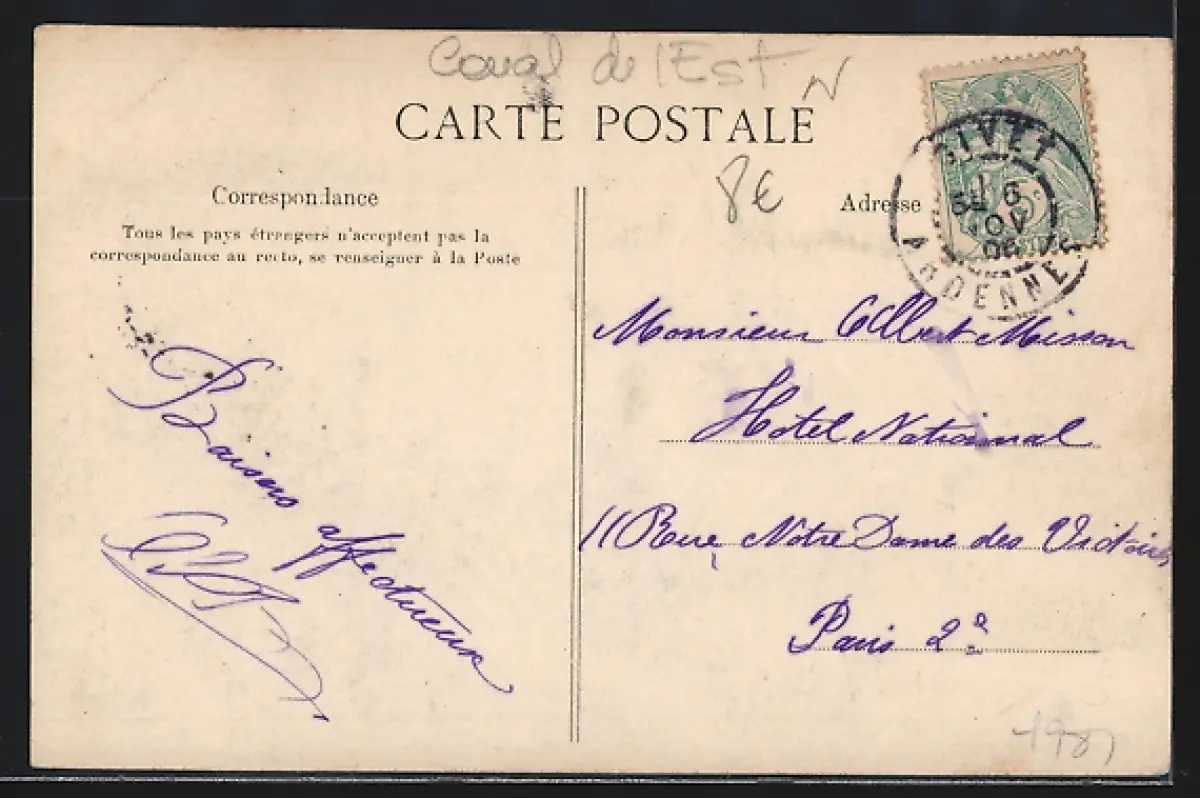 Canal de l'Est N
CARTE POSTALE
8€
Correspondance
Tous les pays étrangers n'acceptent pas la
correspondance au recto, se renseigner à la Poste
Adresse
GIVET
ARDENNES
Baisers affectueux
Monsieur Albert Misson
Hotel National
11 Rue Notre Dame des Victoires
Paris 2e